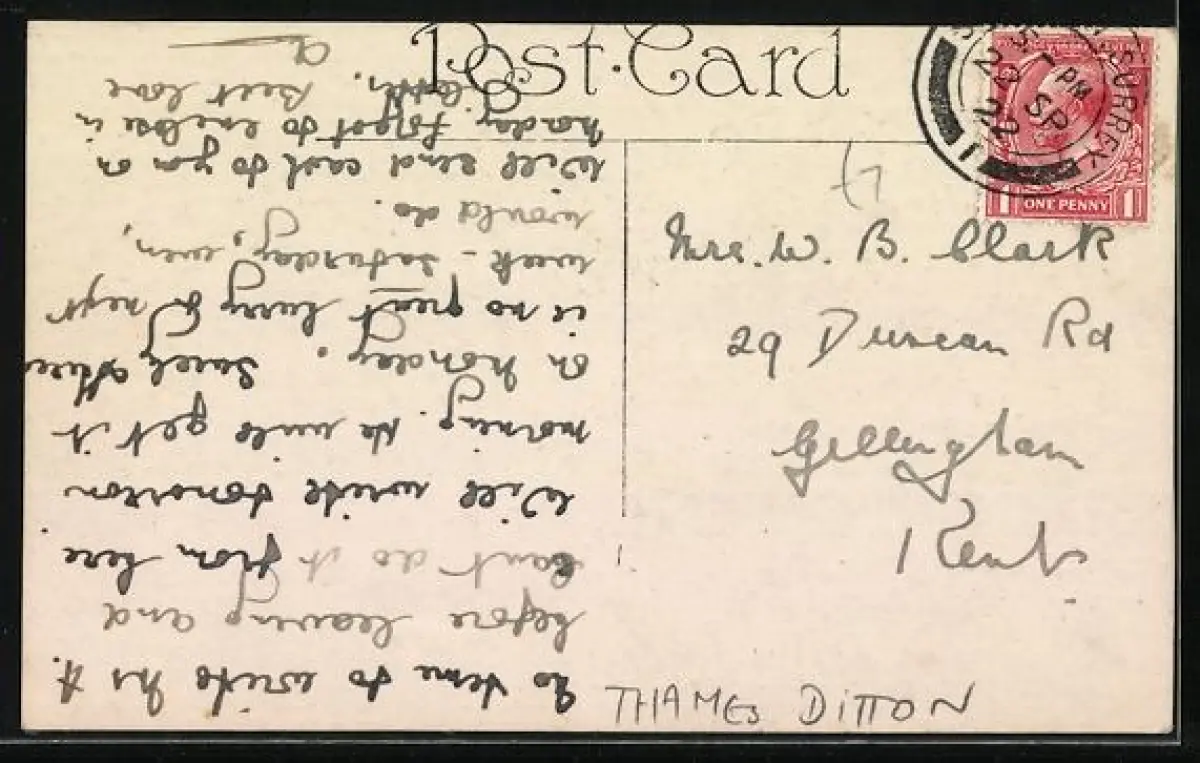 Post Card
SURREY
PM
20 SP
22
1
ONE PENNY
Mrs. W. B. Clark
29 Duncan Rd
Gillingham
Kent
THAMES DITTON
No time to write Mrs H.
before leaving and
can't do it from here.
Will write tomorrow
morning. He will get it
on Monday. Surely there
is no great hurry & next
week - Saturday, even,
would do.
Will send card to you on
Monday. Forgot to enclose in
letter. Best love
a